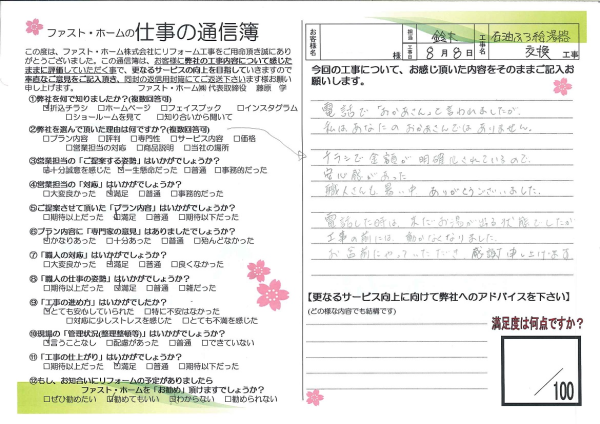 ファスト・ホームの仕事の通信簿
この度は、ファスト・ホーム株式会社にリフォーム工事をご用命頂き誠にあり
がとうございました。この通信簿は、お客様に弊社の工事内容について感じた
ままに評価していただく事で、更なるサービスの向上を目指していきますので
率直なご意見をご記入頂き、同封の返信用封筒にてご返送下さいます様お願い
申し上げます。
ファスト・ホーム㈱ 代表取締役 藤原 学
①弊社を何で知りましたか?(複数回答可)
☑折込チラシ □ホームページ □フェイスブック □インスタグラム
□ショールームを見て □知り合いから聞いて
②弊社を選んで頂いた理由は何ですか?(複数回答可)
□プラン内容 □評判 □専門性 □サービス内容 □価格
□営業担当の対応 □商品説明 □当社の場所
③営業担当の「ご提案する姿勢」はいかがでしょうか?
☑十分誠意を感じた □一生懸命だった □普通 □事務的だった
④営業担当の「対応」はいかがでしょうか?
□大変良かった ☑満足 □普通 □事務的だった
⑤ご提案させて頂いた「プラン内容」はいかがでしょうか?
□期待以上だった ☑満足 □普通 □期待以下だった
⑥プラン内容に「専門家の意見」はありましたでしょうか?
☑かなりあった □十分あった □普通 □殆んどなかった
⑦「職人の対応」はいかがでしょうか?
□大変良かった ☑満足 □普通 □良くなかった
⑧「職人の仕事の姿勢」はいかがでしょうか?
□期待以上だった ☑満足 □普通 □雑だった
⑨「工事の進め方」はいかがでしたか?
☑とても安心していられた □特に不安はなかった
□対応に少しストレスを感じた □とても不満を感じた
⑩現場の「管理状況(整理整頓等)」はいかがでしょうか?
☑言うことなし □配慮があった □普通 □できていない
⑪「工事の仕上がり」はいかがでしょうか?
□期待以上だった ☑満足 □普通 □期待以下だった
⑫もし、お知合いにリフォームの予定がありましたら
ファスト・ホームを「お勧め」頂けますでしょうか?
□ぜひ勧めたい ☑勧めてもいい □わからない □勧められない
お客様名 様
担当 鈴木
工事日 8月8日
工事名 石油ふろ給湯器
交換 工事
今回の工事について、お感じ頂いた内容をそのままご記入お
願いします。
電話で「おかあさん」と言われましたが、
私はあなたのおかあさんではありません。
チラシで金額が明確化されているので、
安心感があった
職人さんも暑い中ありがとうございました。
電話した時は、まだお湯が出る状態でしたが
工事の前には、動かなくなりました。
お盆前にやっていただき、感謝申し上げます
【更なるサービス向上に向けて弊社へのアドバイスを下さい】
(どの様な内容でも結構です)
満足度は何点ですか?
/100